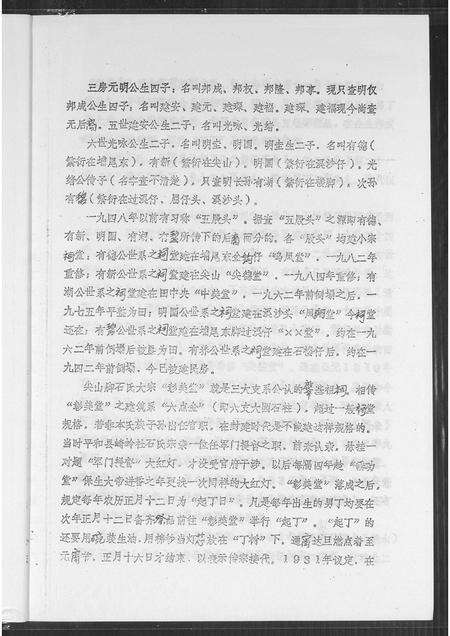 三房元明公生四子：名叫邦成、邦权、邦隆、邦享。现只查明仅
邦成公生四子：名叫建安、建元、建琛、建福。建琛、建福现今尚查
无后裔。五世建安公生二子：名叫光咏、光绪。
六世光咏公生二子，名叫明壹、明圆。明壹生二子，名叫有德（
繁衍在埔尾东），有新（繁衍在尖山）。明圆（繁衍在溪沙仔）。光
绪公传子（名字查不清楚），只查明长孙有湖（繁衍在楼脚），次孙
有（繁衍在过溪仔、厝仔头、溪沙头）。
一九四八年以前有习称“五股头”。据查“五股头”之源即有德、
有新、明圆、有湖、有所传下的后裔而分的。各“股头”均建小宗
祠堂：有德公世系之祠堂建在埔尾东“鸣凤堂”，一九八二年
重修；有新公世系之祠堂建在尖山“尖德堂”，一九八四年重修；有
湖公世系之祠堂建在田中央“中美堂”，一九六二年前倒塌之后，一
九七五年平整为田；明圆公世系之祠堂建在溪沙头“堂”今祠堂
还在；有公世系之祠堂建在埔尾东脚过溪仔“××堂”，约在一九
六二年前倒塌后被垦为田。有公世系之祠堂建在石楼仔后，约在一
九四二年前倒塌，今已被建民房。
尖山脚石氏大宗“彰美堂”就是三大支系公认的肇基祖祠，相传
“彰美堂”之建筑系“六点金”（即六支大圆石柱），超过一般祠堂
规格，若非本氏族子孙出任官职，在封建时代是不能建这样规格的。
当时平和县崎岭社石氏宗亲一位任军门提督之职，前来认宗，悬挂一
对题“军门提督”大红灯，才没受官府干涉。以后每隔四年趁“
堂”保生大帝进香之年更换一次同样的大红灯。“彰美堂”落成之后，
规定每年农历正月十二日为“起丁日”。凡是每年出生的男丁均要在
次年正月十二日备齐前往“彰美堂”举行“起丁”。“起丁”的
还要用碗装生油，用棉纱当灯芯放在“丁树”下，通宵达旦燃点着至
元宵节，正月十六日才结束，以表示传宗接代。1931年议定，在